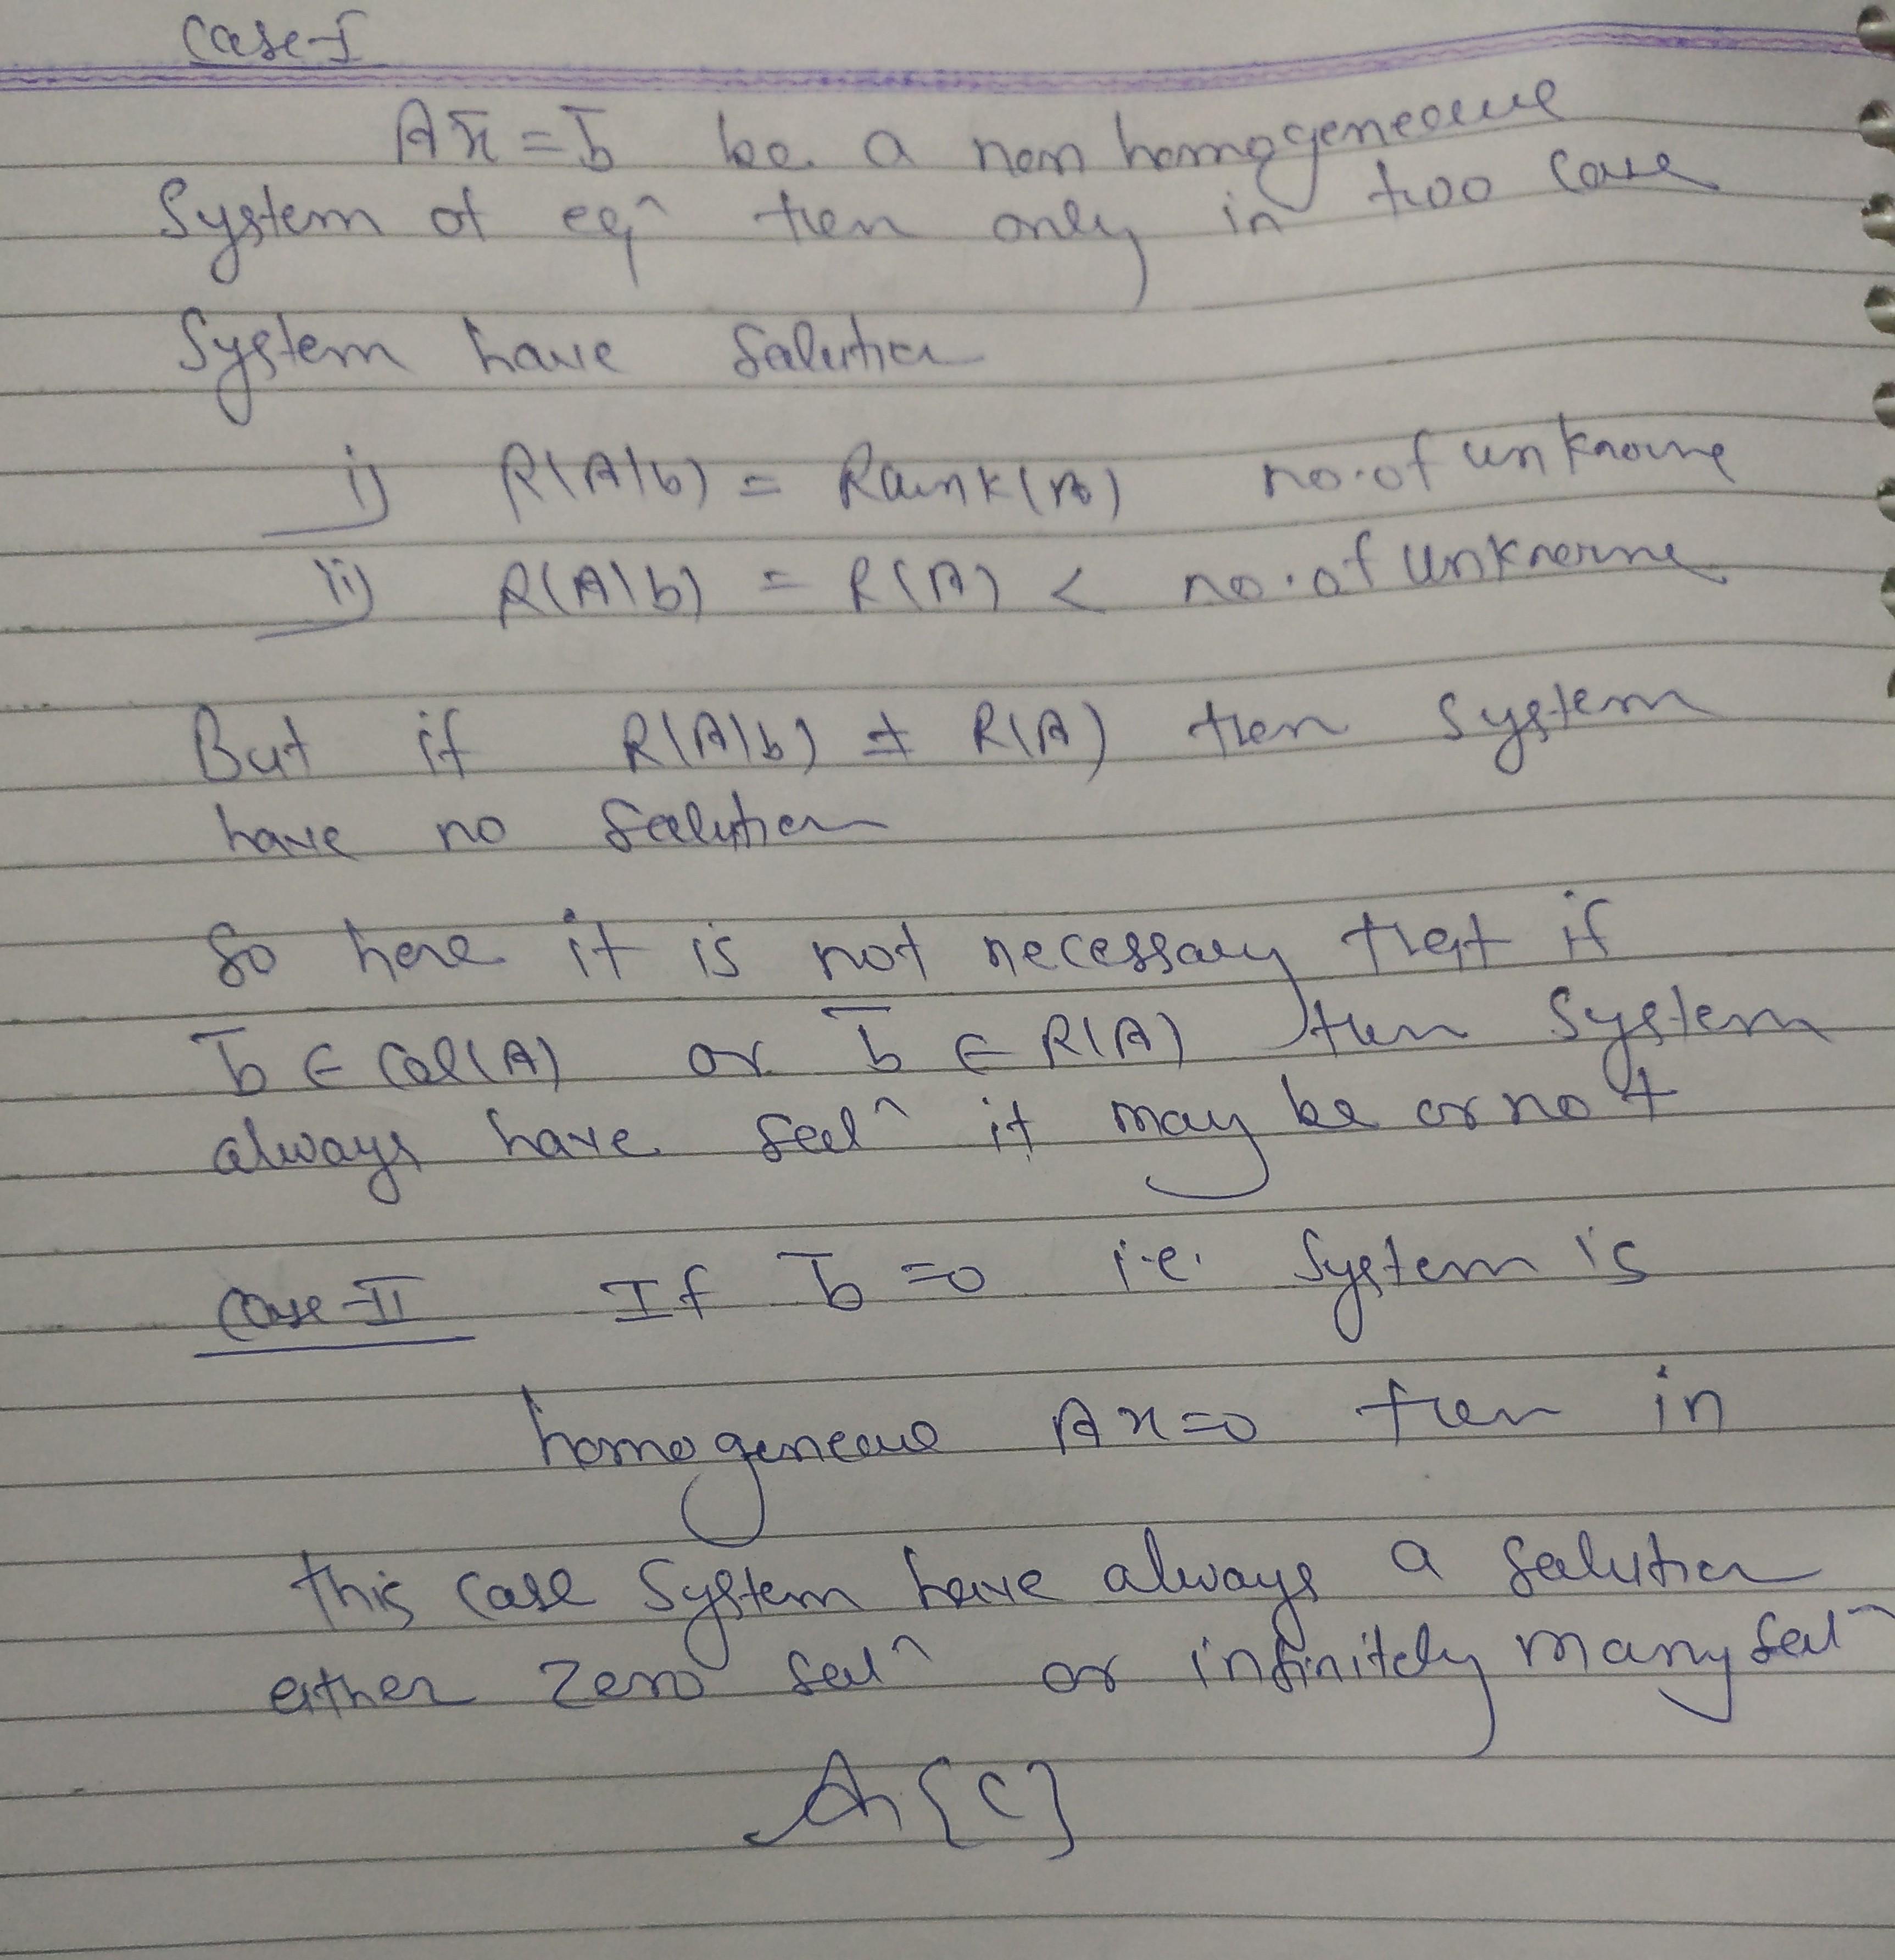 Case-I
Ax̄ = b̄ be a non homogeneous
System of eqⁿ then only in two case
System have Solution
i) R(A|b) = Rank(A) no. of unknowns
ii) R(A|b) = R(A) < no. of unknowns
But if R(A|b) ≠ R(A) then System
have no Solution
So here it is not necessary that if
b̄ ∈ Col(A) or b̄ ∈ R(A) then System
always have solⁿ it may be or not
Case-II If b̄ =0 i.e. System is
homogeneous Ax=0 then in
this case System have always a Solution
either Zero solⁿ or infinitely many solⁿ
[C]